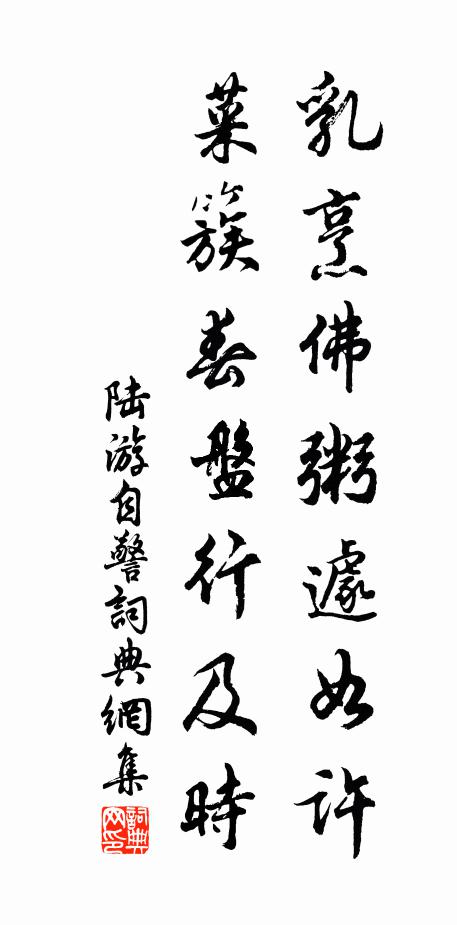 乳烹佛粥遽如許
菜簇春盤行及時
陆游自警詞典網集
詞典网印